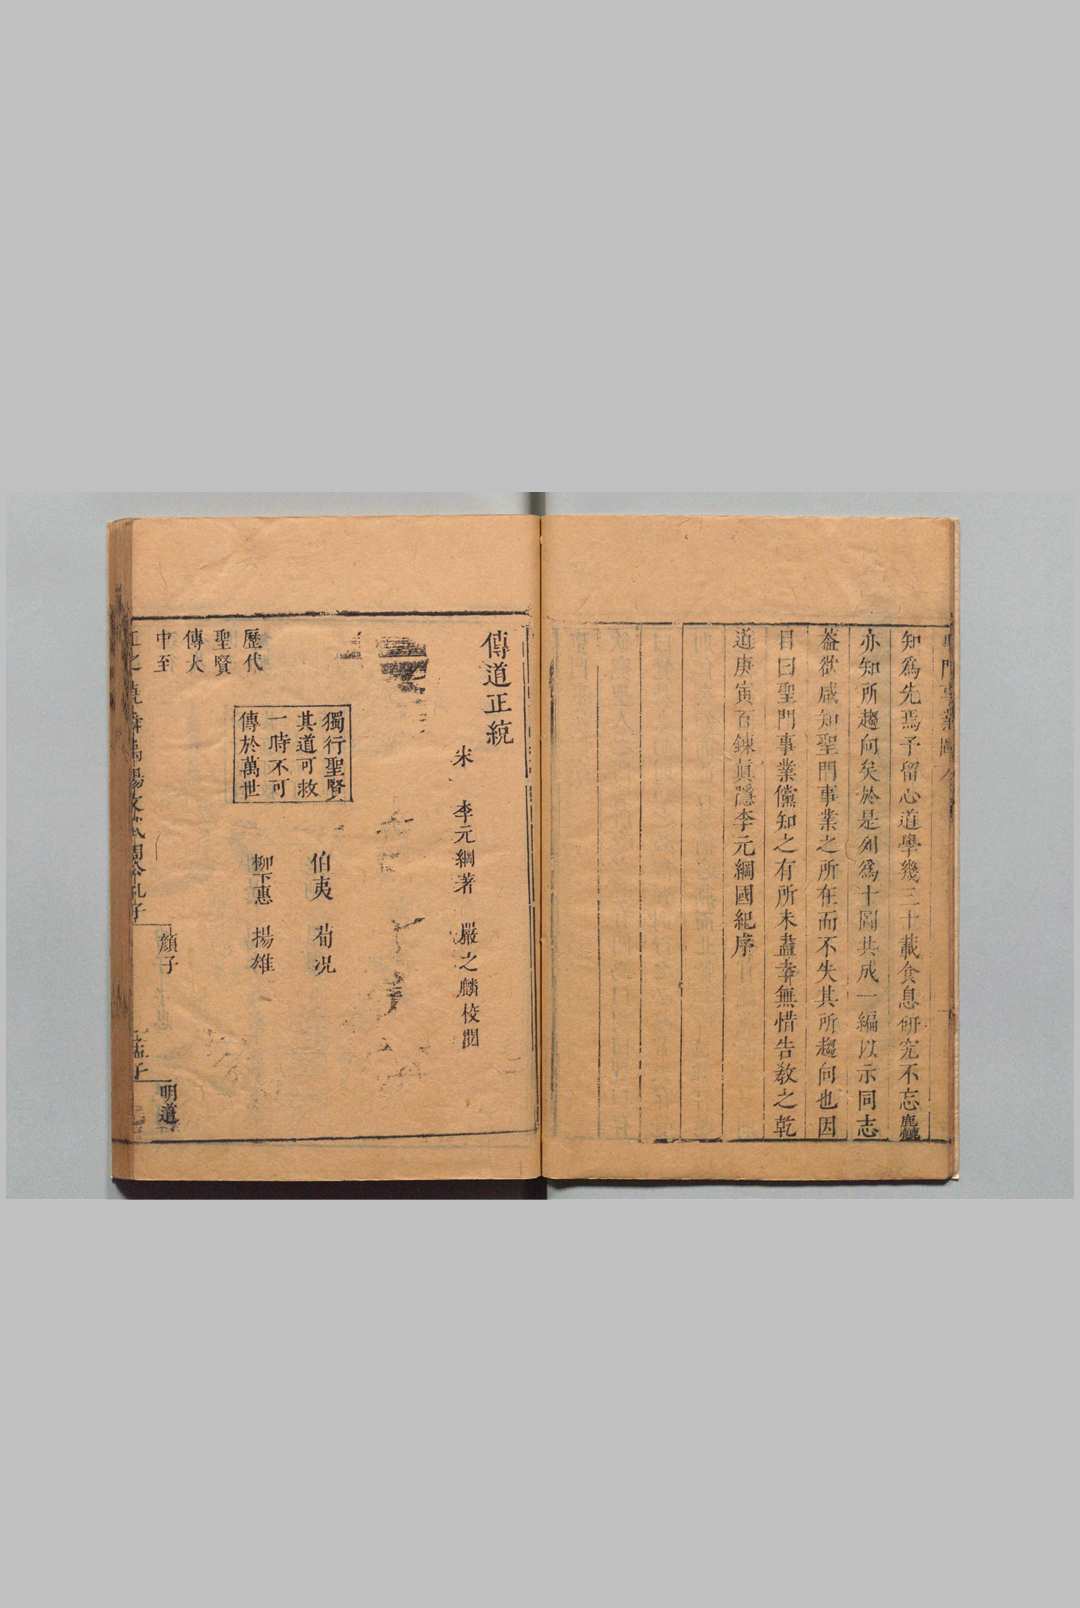 知為先焉予留心道學幾三十載食息研究不忘麤
亦知所趨向矣於是列為十圖共成一編以示同志
葢欲咸知聖門事業之所在而不失其所趨向也因
目曰聖門事業儻知之有所未盡幸無惜告敎之乾
道庚寅百鍊眞隱李元綱國紀序
傳道正統
宋 李元綱著 嚴之麟校閱
獨行聖賢
其道可救
一時不可
傳於萬世
伯夷 荀况
柳下惠 揚雄
歷代
聖賢
傳大
中至
顔子
明道